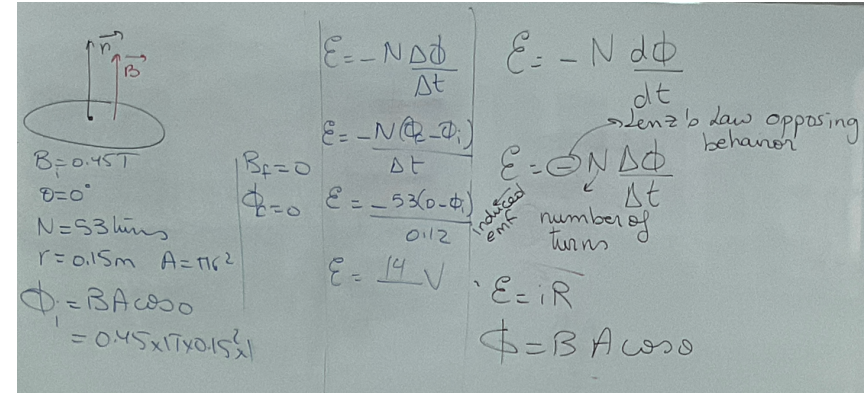 n
B
Bᵢ=0.45T
θ=0°
N=53 turns
r=0.15m A=πr²
Φᵢ=BAcosθ
=0.45xπx0.15²x1
B_f=0
Φ_f=0
Ɛ=-NΔΦ/Δt
Ɛ=-N(Φ_f-Φᵢ)/Δt
Ɛ=-53(0-Φᵢ)/0.12
Ɛ=14 V
Ɛ=-N dΦ/dt
→Lenz's Law opposing
behavior
Ɛ=-NΔΦ/Δt
induced
emf
number of
turns
Ɛ=iR
Φ=BAcosθ